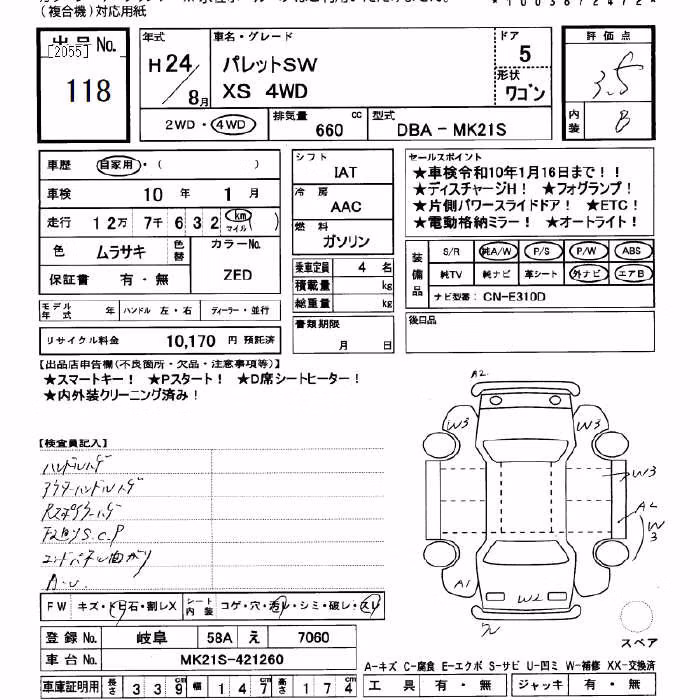 (複合機)対応用紙
*1003872472*
出品No.
[2055]
118
年式
H24/8月
車名・グレード
パレットSW
XS 4WD
ドア
5
形状
ワゴン
評価点
3.5
内装
B
2WD・4WD
排気量
660
cc
型式
DBA - MK21S
車歴 自家用・( )
車検 10年 1月
走行 12万7千632 km マイル ( )
色 ムラサキ 色替
カラーNo.
ZED
保証書 有・無
シフト
IAT
冷房
AAC
燃料
ガソリン
乗車定員 4名
積載量 kg
総重量 kg
セールスポイント
★車検令和10年1月16日まで!!
★ディスチャージH! ★フォグランプ!
★片側パワースライドドア! ★ETC!
★電動格納ミラー! ★オートライト!
装備品
S/R 純A/W P/S P/W ABS
純TV 純ナビ 革シート 外ナビ エアB
ナビ型番: CN-E310D
モデル年式 年 ハンドル 左・右 ディーラー・並行
リサイクル料金 10,170 円 預託済
書類期限
月 日
後日品
【出品店申告欄(不良箇所・欠品・注意事項等)】
★スマートキー! ★Pスタート! ★D席シートヒーター!
★内外装クリーニング済み!
【検査員記入】
ハンドルハゲ
アウターハンドルハゲ
エンドパネル曲がり
A2
W3
W3
W3
A2
W3
A1
W2
スペア
FW キズ・トビ石・割レX
シート内装 コゲ・穴・汚レ・シミ・破レ・スレ
登録No. 岐阜 58A え 7060
車台No. MK21S-421260
車庫証明用 長さ 339cm 幅 147cm 高さ 174cm
A-キズ C-腐食 E-エクボ S-サビ U-凹ミ W-補修 XX-交換済
工具 有・無 ジャッキ 有・無